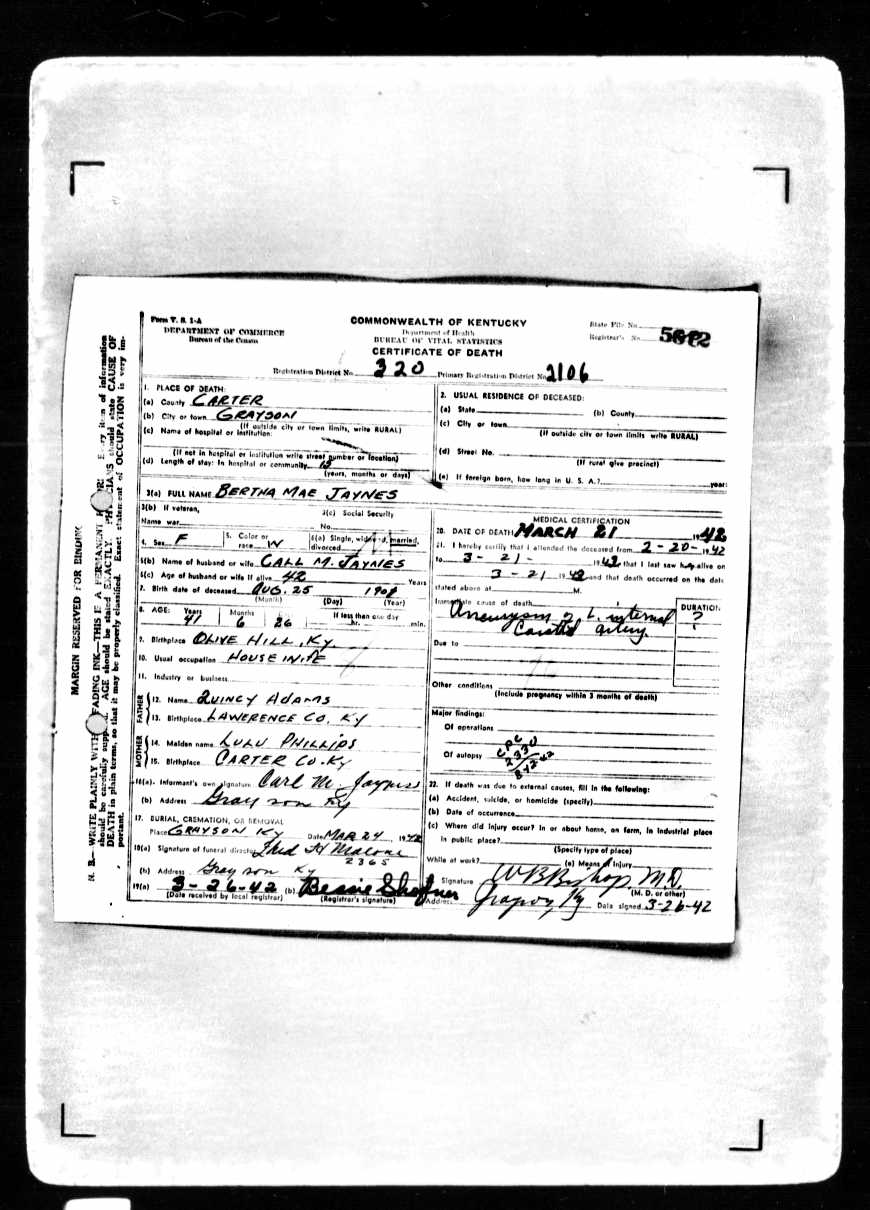 Form V. S. 1-A
DEPARTMENT OF COMMERCE
Bureau of the Census
COMMONWEALTH OF KENTUCKY
Department of Health
BUREAU OF VITAL STATISTICS
CERTIFICATE OF DEATH
State File No.
Registrar's No.
Registration District No. 320 Primary Registration District No. 2106
1. PLACE OF DEATH:
(a) County CARTER
(b) City or town GRAYSON
(If outside city or town limits, write RURAL)
(c) Name of hospital or institution:
(If not in hospital or institution write street number or location)
(d) Length of stay: In hospital or community
(years, months or days)
2. USUAL RESIDENCE OF DECEASED:
(a) State (b) County
(c) City or town
(If outside city or town limits write RURAL)
(d) Street No.
(If rural give precinct)
(e) If foreign born, how long in U. S. A.? years
3(a) FULL NAME BERTHA MAE JAYNES
3(b) If veteran,
Name war
3(c) Social Security
No.
4. Sex F 5. Color or race W 6(a) Single, widowed, married, divorced
6(b) Name of husband or wife CALL M. JAYNES
6(c) Age of husband or wife if alive 42 Years
7. Birth date of deceased AUG. 25
(Month) (Day) (Year)
8. AGE: Years Months If less than one day
41 6 26 hr. min.
9. Birthplace OLIVE HILL, KY.
10. Usual occupation HOUSEWIFE
11. Industry or business
FATHER
12. Name QUINCY ADAMS
13. Birthplace LAWERENCE CO. KY
MOTHER
14. Maiden name LULU PHILLIPS
15. Birthplace CARTER CO. KY
16(a). Informant's own signature Carl M. Jaynes
(b) Address Grayson Ky
17. BURIAL, CREMATION, OR REMOVAL
Place GRAYSON KY Date MAR 24 1942
18(a) Signature of funeral director Fred H Malone
2365
(b) Address Grayson Ky
19(a) 3-26-42 (b) Bessie
(Date received by local registrar) (Registrar's signature)
MEDICAL CERTIFICATION
20. DATE OF DEATH MARCH 21 1942
21. I hereby certify that I attended the deceased from 2-20- 1942
to 3-21- 1942 that I last saw her alive on
3-21 1942 and that death occurred on the date
stated above at M.
Immediate cause of death
Aneurysm of L. internal
Carotid artery
DURATION
?
Due to
Other conditions
(Include pregnancy within 3 months of death)
Major findings:
Of operations
Of autopsy
22. If death was due to external causes, fill in the following:
(a) Accident, suicide, or homicide (specify)
(b) Date of occurrence
(c) Where did injury occur? In or about home, on farm, in industrial place
in public place?
(Specify type of place)
While at work? (e) Means of Injury
Signature W B Bishop M.D.
(M. D. or other)
Address Grayson Ky Date signed 3-26-42
MARGIN RESERVED FOR BINDING